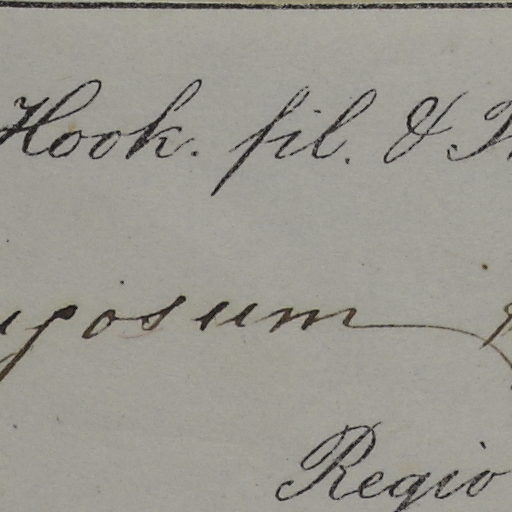 Hook. fil. & T
posum
Regio